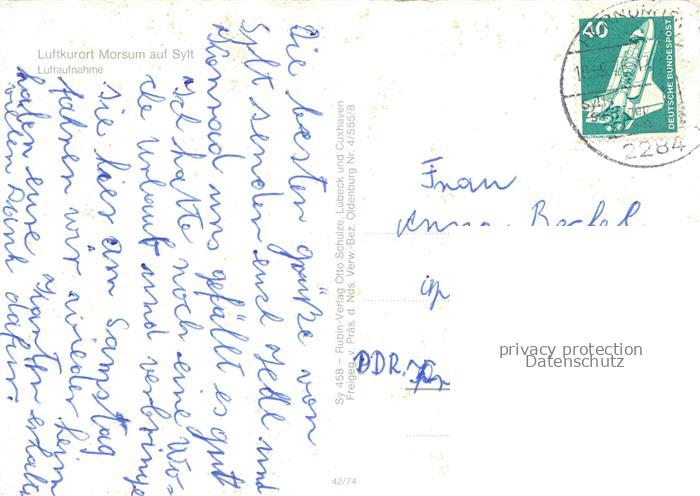 Luftkurort Morsum auf Sylt
Luftaufnahme
Die besten grüße von
Sylt senden euch Hedl und
Konrad uns gefällt es gut
ich hatte noch eine Wo=
che Urlaub und verbringe
sie hier am Samstag
fahren wir wieder heim
haben eure Karten erhalten
vielen Dank dafür.
Sy 458 – Rubin-Verlag Otto Schulze, Lübeck und Cuxhaven
Freigeg. v. Präs. d. Nds. Verw.-Bez. Oldenburg Nr. 4/565/8
42/74
40
DEUTSCHE BUNDESPOST
2284
Frau
Anna
in
DDR.
privacy protection
Datenschutz